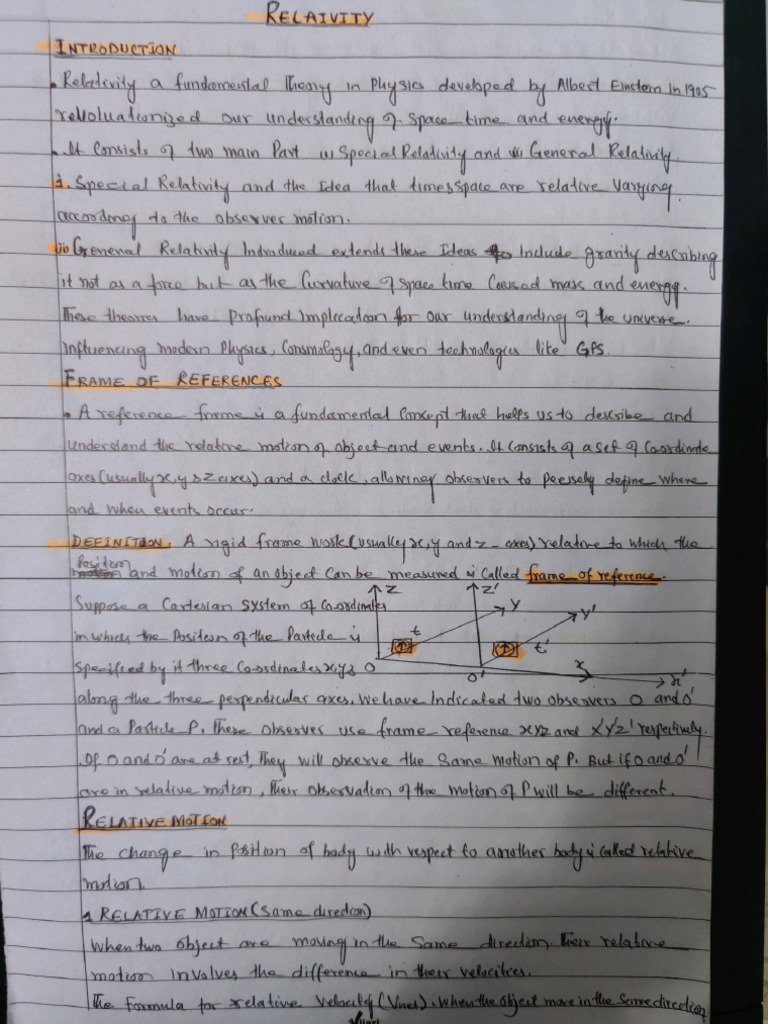 RELAIVITY
INTRODUCTION
. Relativity a fundamental Theory in Physics developed by Albert Einstein in 1905
revoluationized our understanding of space time and energy.
. It consists of two main Part (i) Special Relativity and (ii) General Relativity.
i. Special Relativity and the Idea that time & space are relative varying
according to the observer motion.
(ii) General Relativity Indroduced extends these Ideas to Include gravity describing
it not as a force but as the Curvature of space time Caused mass and energy.
These theories have Profound Implication for our understanding of the universe.
Influencing modern Physics, Consmology, and even technologies like GPS.
FRAME OF REFERENCES
. A reference frame is a fundamental Concept that helps us to describe and
understand the relative motion of object and events. It Consists of a set of Co-ordinate
axes (usually x, y & z axes) and a clock, allowing observers to percisely define where
and when events occur.
DEFINITION: A rigid frame work (usually x, y and z - axes) relative to which the
Position and motion of an object Can be measured is Called frame of reference.
Suppose a Cartesian system of Co-ordinates
in which the Position of the Particle is
Specified by it three Co-ordinates x,y,z
Z Z' Y Y'
t t'
O O' x x'
along the three perpendicular axes. We have Indicated two observers O and O'
and a Particle P. These observers use frame reference XYZ and X'Y'Z' respectively.
If O and O' are at rest, They will observe the Same motion of P. But if O and O'
are in relative motion, Their observation of the motion of P will be different.
RELATIVE MOTION
The change in Position of body with respect to another body is Called relative
motion.
1 RELATIVE MOTION (Same direction)
When two object are moving in the Same direction Their relative
motion Involves the difference in their velocities.
The Formula for relative Velocity (Vrel). When the object move in the Same direction